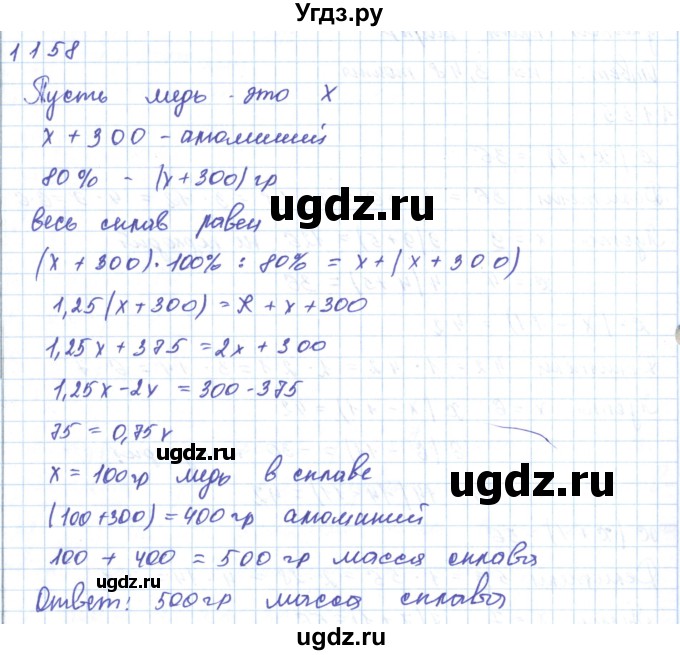 Угдз.ру
1158
Пусть медь - это х
х + 300 - алюминий
80% - (х+300) гр
весь сплав равен
(х + 300) · 100% : 80% = х + (х + 300)
1,25(х+300) = х + х + 300
1,25х + 375 = 2х + 300
1,25х - 2х = 300 - 375
75 = 0,75х
х = 100 гр медь в сплаве
(100+300) = 400 гр алюминий
100 + 400 = 500 гр масса сплава
Ответ: 500 гр масса сплава
ugdz.ru
ugdz.ru
ugdz.ru
ugdz.ru
ugdz.ru